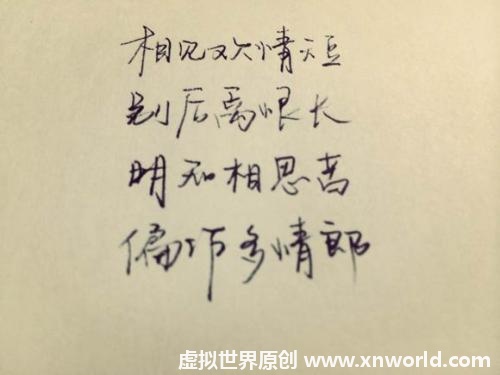 相见欢情短
别后离恨长
明知相思苦
偏作多情郎
虚拟世界原创 www.xnworld.com